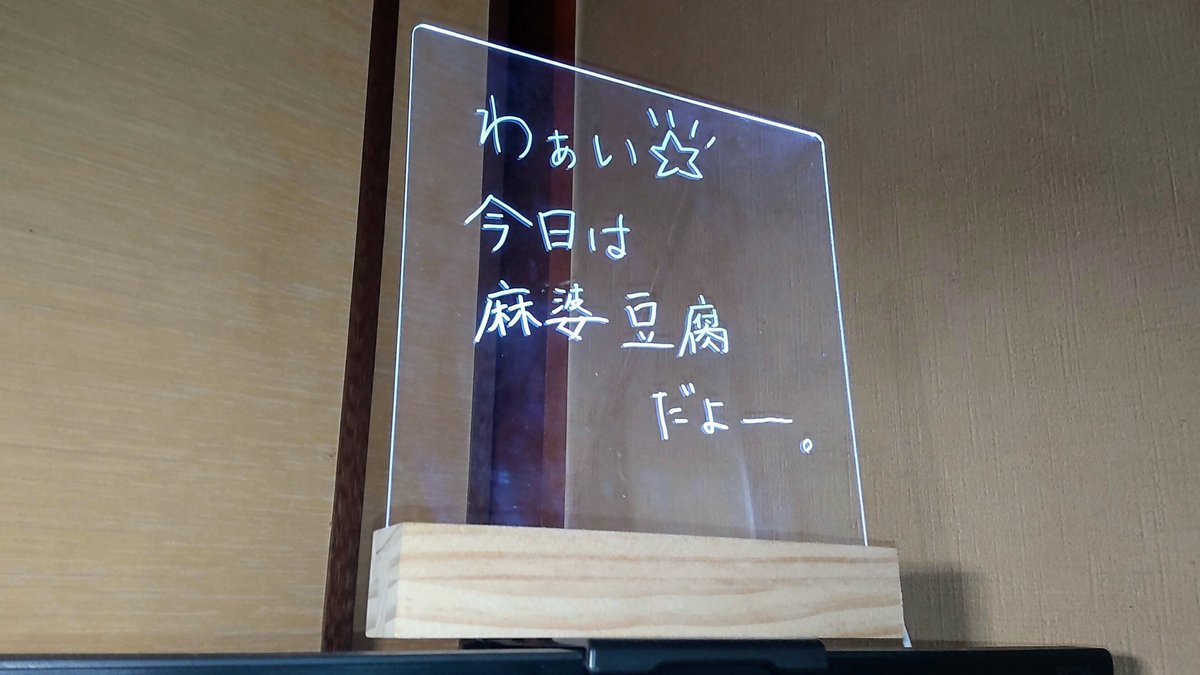 わぁい☆
今日は
麻婆豆腐
だよー。